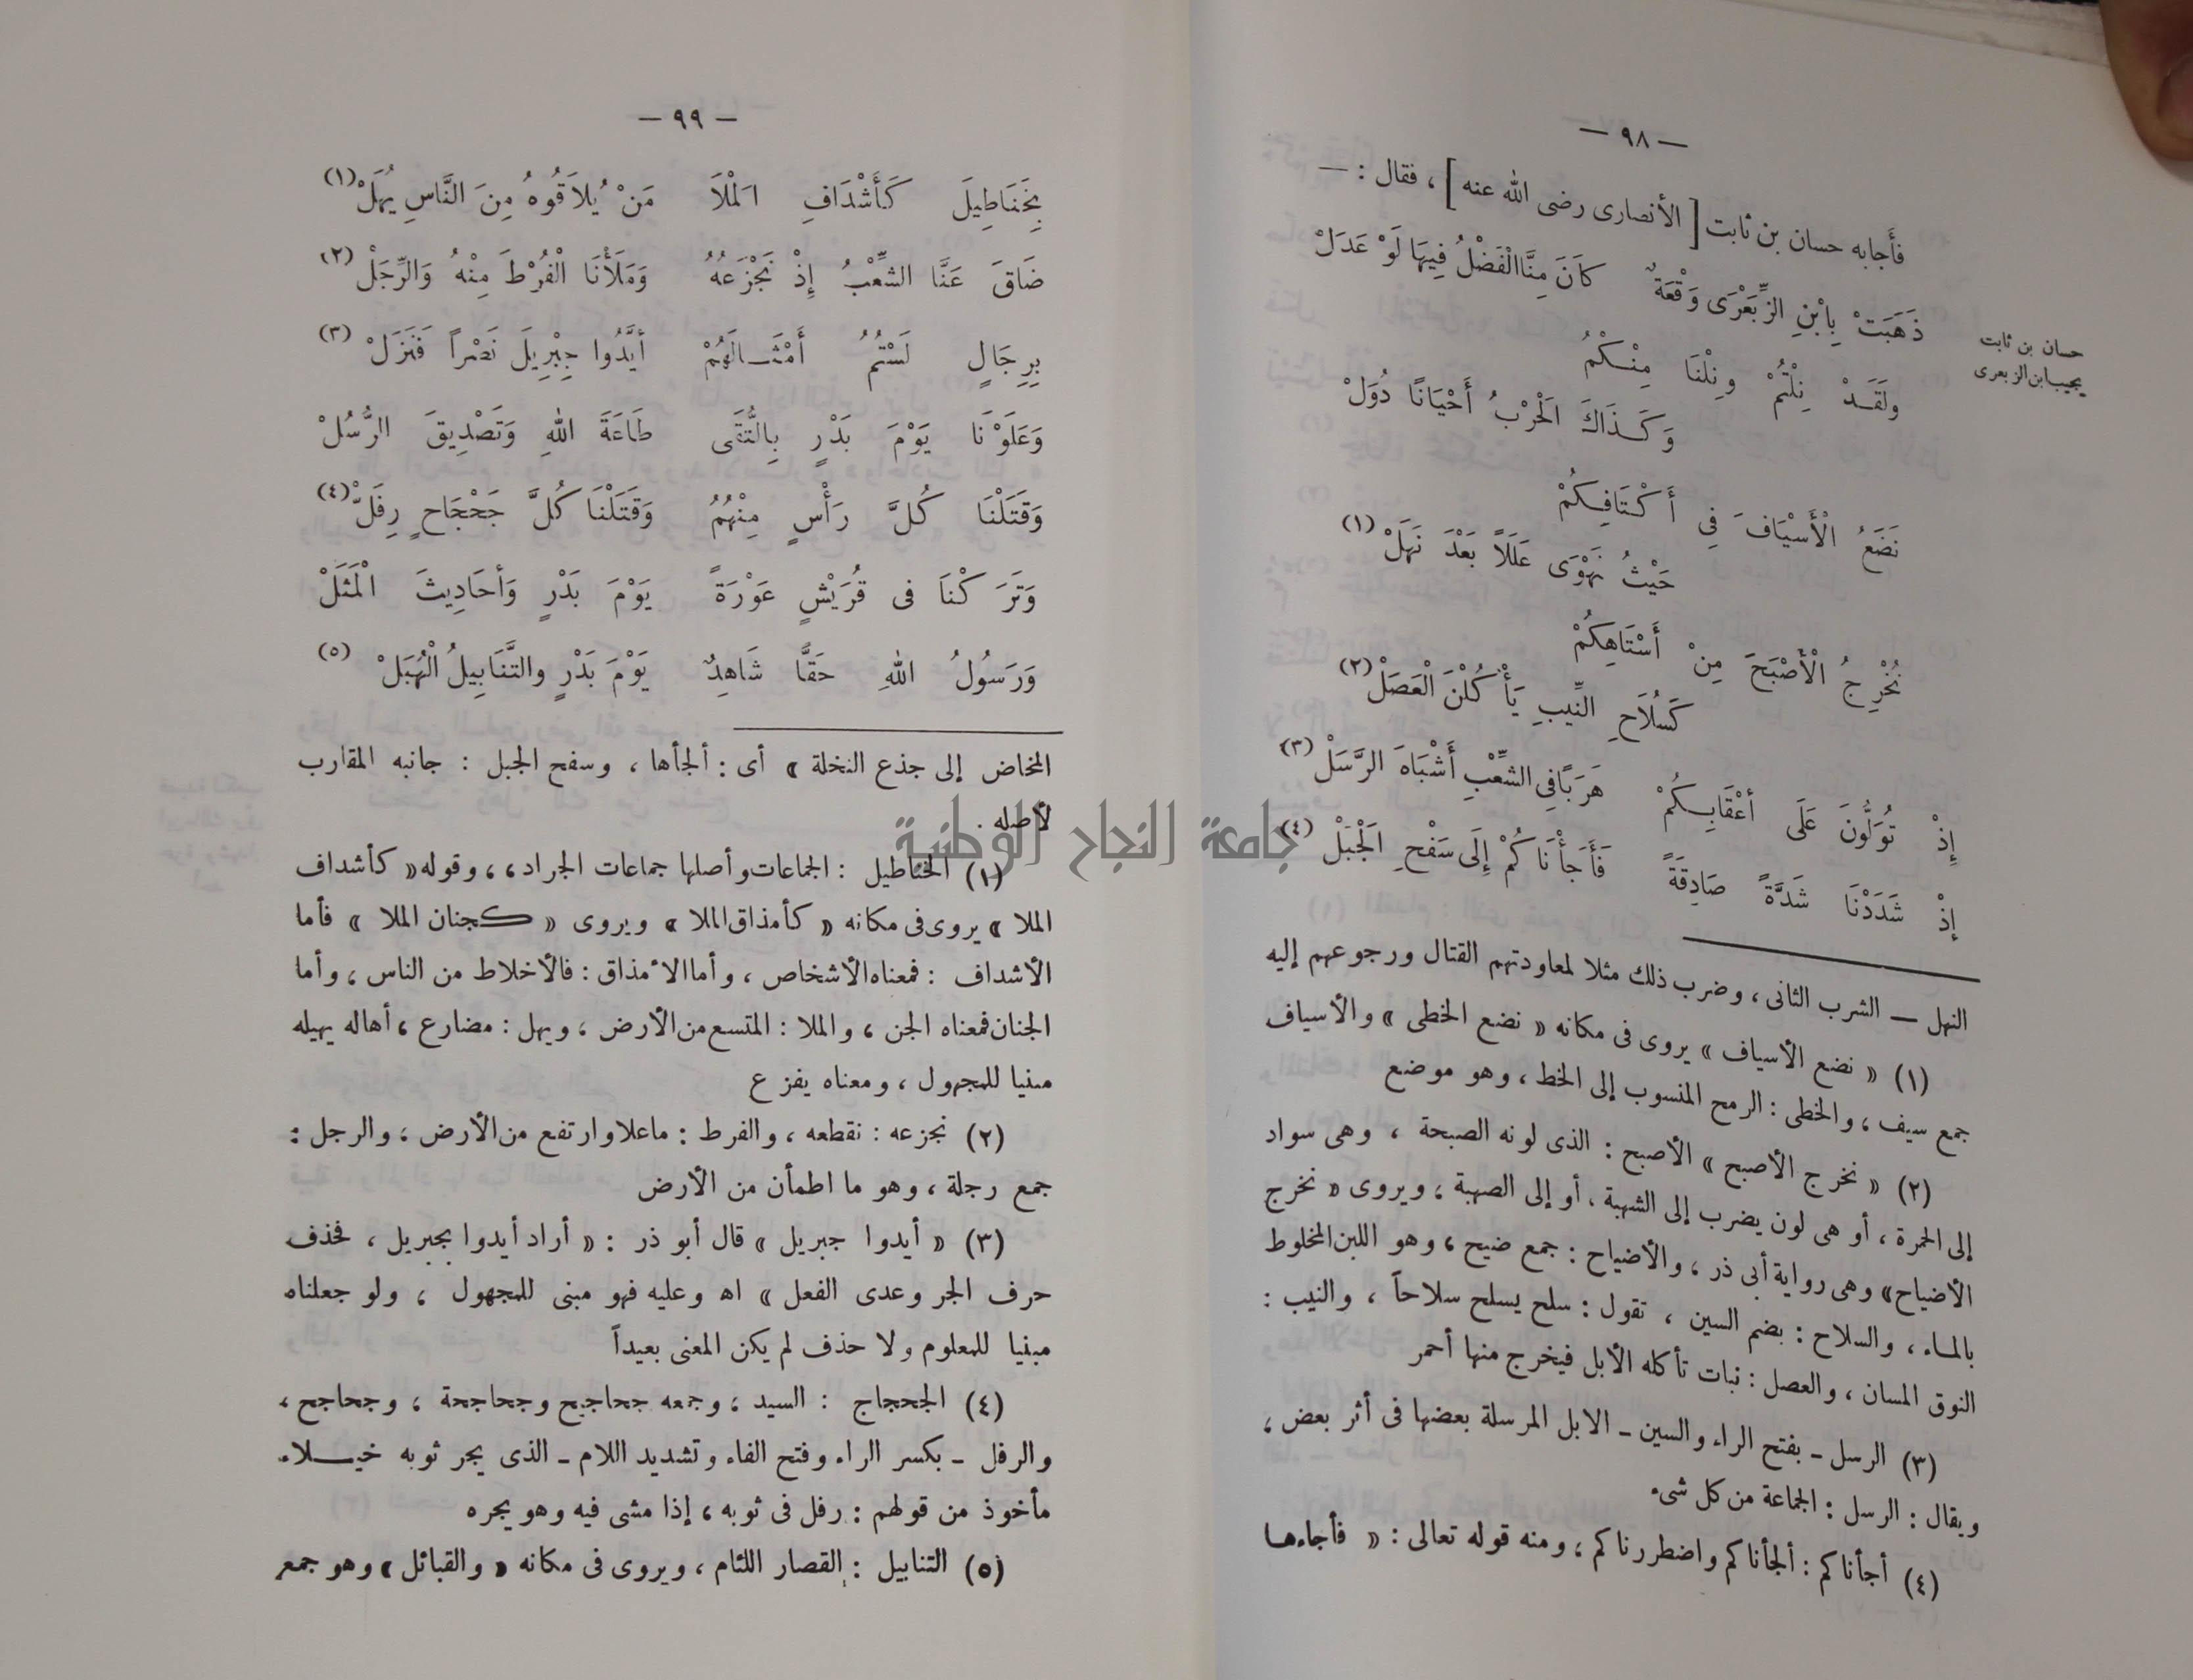 — ٩٨ —
فأَجابه حسان بن ثابت [ الأنصارى رضى الله عنه ] ، فقال : —
ذَهَبَتْ بِابْنِ الزِّبَعْرَى وَقْعَةٌ كاَنَ مِنَّا الْفَضْلُ فِيهَا لَوْ عَدَلْ
حسان بن ثابت
يجيب ابن الزبعرى
ولَقَدْ نِلْتُمْ ونِلْنَا مِنْكمُ
وَكَذَاكَ الَحْرْبُ أَحْيَانًا دُوَلْ
نَضَعُ الْأَسْيَافَ فِي أَكْتَافِكُمْ
حَيْثُ نَهْوَى عَلَلاً بَعْدَ نَهَلْ (١)
نُخْرِجُ الْأَصْبَحَ مِنْ أَسْتَاهِكُمْ
كَسُلاَحِ النِّيبِ يَأْكُلْنَ الْعَصَلْ (٢)
إِذْ تُوَلُّونَ عَلَى أعْقَابِكُمْ هَرَبًا فِي الشِّعْبِ أَشْبَاهَ الرَّسَلْ (٣)
إِذْ شَدَدْنَا شَدَّةً صَادِقَةً فَأَجَأْنَاكُمْ إِلَى سَفْحِ الَجْبَلْ (٤)
النهل — الشرب الثانى ، وضرب ذلك مثلا لمعاودتهم القتال ورجوعهم إليه
(١) « نضع الأسياف » يروى فى مكانه « نضع الخطى » والأسياف
جمع سيف ، والخطى : الرمح المنسوب إلى الخط ، وهو موضع
(٢) « نخرج الأصبح » الأصبح : الذى لونه الصبحة ، وهى سواد
إلى الحمرة ، أو هى لون يضرب إلى الشهبة ، أو إلى الصهبة ، ويروى « نخرج
الأضياح » وهى رواية أبى ذر ، والأضياح : جمع ضيح ، وهو اللبن المخلوط
بالماء ، والسلاح : بضم السين ، تقول : سلح يسلح سلاحاً ، والنيب :
النوق المسان ، والعصل : نبات تأكله الأبل فيخرج منها أحمر
(٣) الرسل ـ بفتح الراء والسين ـ الابل المرسلة بعضها فى أثر بعض ،
ويقال : الرسل : الجماعة من كل شىء
(٤) أجأناكم : ألجأناكم واضطررناكم ، ومنه قوله تعالى : « فأجاءها
— ٩٩ —
بِخَنَاطِيلَ كَأَشْدَافِ الَمْلاَ مَنْ يُلاَقُوهُ مِنَ النَّاسِ يُهَلْ (١)
ضَاقَ عَنَّا الشِّعْبُ إِذْ نَجْزَعُهُ وَمَلَأْنَا الْفُرْطَ مِنْهُ وَالرِّجَلْ (٢)
بِرِجَالٍ لَسْتُمُ أَمْثَالَهُمْ أيَّدُوا جِبْرِيلَ نَصْراً فَنَزَلْ (٣)
وَعَلَوْنَا يَوْمَ بَدْرٍ بِالتُّقَى طَاعَةَ اللهِ وَتَصْدِيقَ الرُّسُلْ
وَقَتَلْنَا كُلَّ رَأْسٍ مِنْهُمُ وَقَتَلْنَا كُلَّ جَحْجَاحٍ رِفَلّْ (٤)
وَتَرَكْنَا فى قُرَيْشٍ عَوْرَةً يَوْمَ بَدْرٍ وَأحَادِيثَ الْمَثَلْ
وَرَسُولُ اللهِ حَقًّا شَاهِدٌ يَوْمَ بَدْرٍ والتَّنَابِيلُ الْهُبَلْ (٥)
المخاض إلى جذع النخلة » أى : ألجأها ، وسفح الجبل : جانبه المقارب
لأصله .
(١) الخناطيل : الجماعات وأصلها جماعات الجراد ، ، وقوله « كأشداف
الملا » يروى فى مكانه « كأمذاق الملا » ويروى « كجنان الملا » فأما
الأشداف : فمعناه الأشخاص ، وأما الأمذاق : فالأخلاط من الناس ، وأما
الجنان فمعناه الجن ، والملا : المتسع من الأرض ، ويهل : مضارع ، أهاله يهيله
مبنيا للمجهول ، ومعناه يفزع
(٢) نجزعه : نقطعه ، والفرط : ما علا وارتفع من الأرض ، والرجل :
جمع رجلة ، وهو ما اطمأن من الأرض
(٣) « أيدوا جبريل » قال أبو ذر : « أراد أيدوا بجبريل ، فحذف
حرف الجر وعدى الفعل » اه وعليه فهو مبنى للمجهول ، ولو جعلناه
مبنيا للمعلوم ولا حذف لم يكن المعنى بعيداً
(٤) الجحجاج : السيد ، وجمعه جحاجيح وجحاجحة ، وجحاجح ،
والرفل ـ بكسر الراء وفتح الفاء وتشديد اللام ـ الذى يجر ثوبه خيلاء
مأخوذ من قولهم : رفل فى ثوبه ، إذا مشى فيه وهو يجره
(٥) التنابيل : القصار اللئام ، ويروى فى مكانه « والقبائل » وهو جمع
جامعة النجاح الوطنية